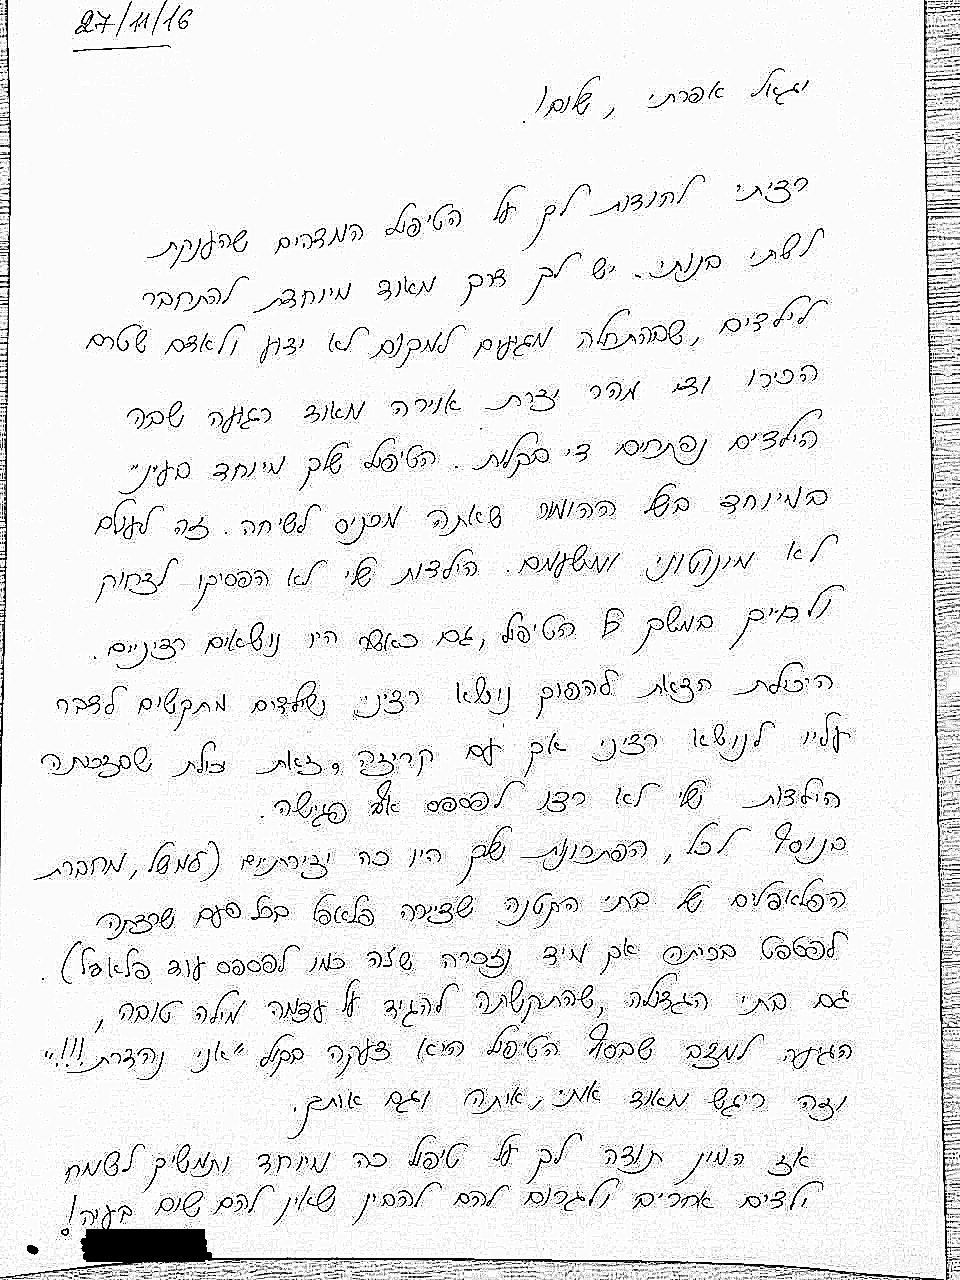 27/11/16
יגאל אפרתי, שלום!
רציתי להודות לך על הטיפול המדהים שהענקת
לשתי בנותי. יש לך דרך מאוד מיוחדת להתחבר
לילדים, שבהתחלה מגיעים למקום לא ידוע ולאדם שטרם
הכירו ודי מהר יצרת אוירה מאוד רגיעה שבה
הילדים נפתחים די בקלות. הטיפול שלך מיוחד בעיני
במיוחד בשל ההומור שאתה מכניס לשיחה. זה לעולם
לא מונוטוני ומשעמם. הילדות שלי לא הפסיקו לצחוק
ולחייך במשך כל הטיפול, גם כאשר היו נושאים רציניים.
היכולת הזאת להפוך נושא רציני שילדים מתקשים לדבר
עליו לנושא רציני אך עם קריצה, זאת יכולת שבזכותה
הילדות שלי לא רצו לפספס אף פגישה.
בנוסף לכל, הפתרונות שלך היו כה יצירתיים (למשל, מחברת
הפלאפלים של בתי הקטנה שציירה פלאפל בכל פעם שרצתה
לפטפט בכיתה אך מיד נזכרה שזה כמו לפספס עוד פלאפל).
גם בתי הגדולה, שהתקשתה להגיד על עצמה מילה טובה,
הגיעה למצב שבסוף הטיפול היא צעקה בקול "אני נהדרת!!!"
וזה ריגש מאוד אותי, אותה וגם אותך.
אז המון תודה לך על טיפול כה מיוחד ותמשיך לשמח
ילדים אחרים ולגרום להם להבין שאין להם שום בעיה!